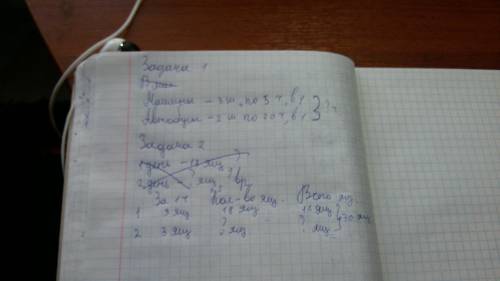 Задача 1
Машины – 3 ш, по 5 ч, в 1
Автобусы – 2 ш по 20 ч, в 1 } ? ч
Задача 2
1 день – 18 ящ
2 день – ? ящ
За 1 ч Кол-во ящ. Всего ящ
1 3 ящ 18 ящ 18 ящ
? ? } 30 ящ
2 3 ящ ? ящ ? ящ